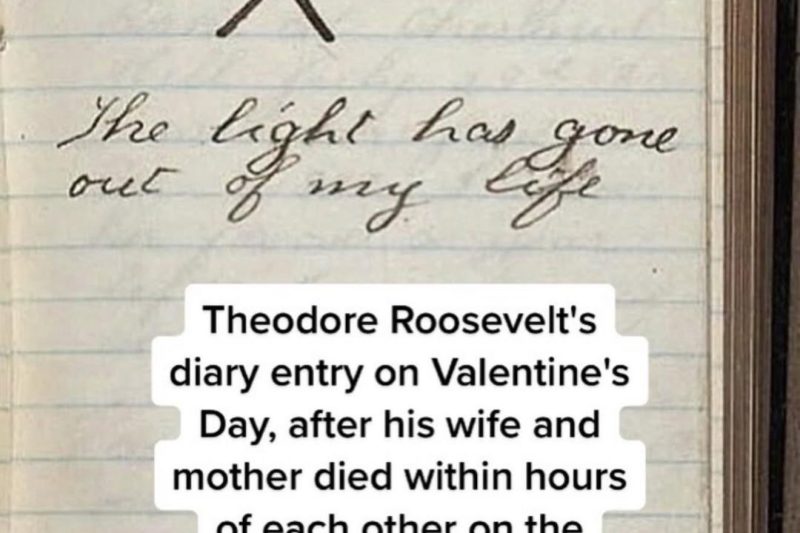 X
The light has gone
out of my life
Theodore Roosevelt's
diary entry on Valentine's
Day, after his wife and
mother died within hours
of each other on the